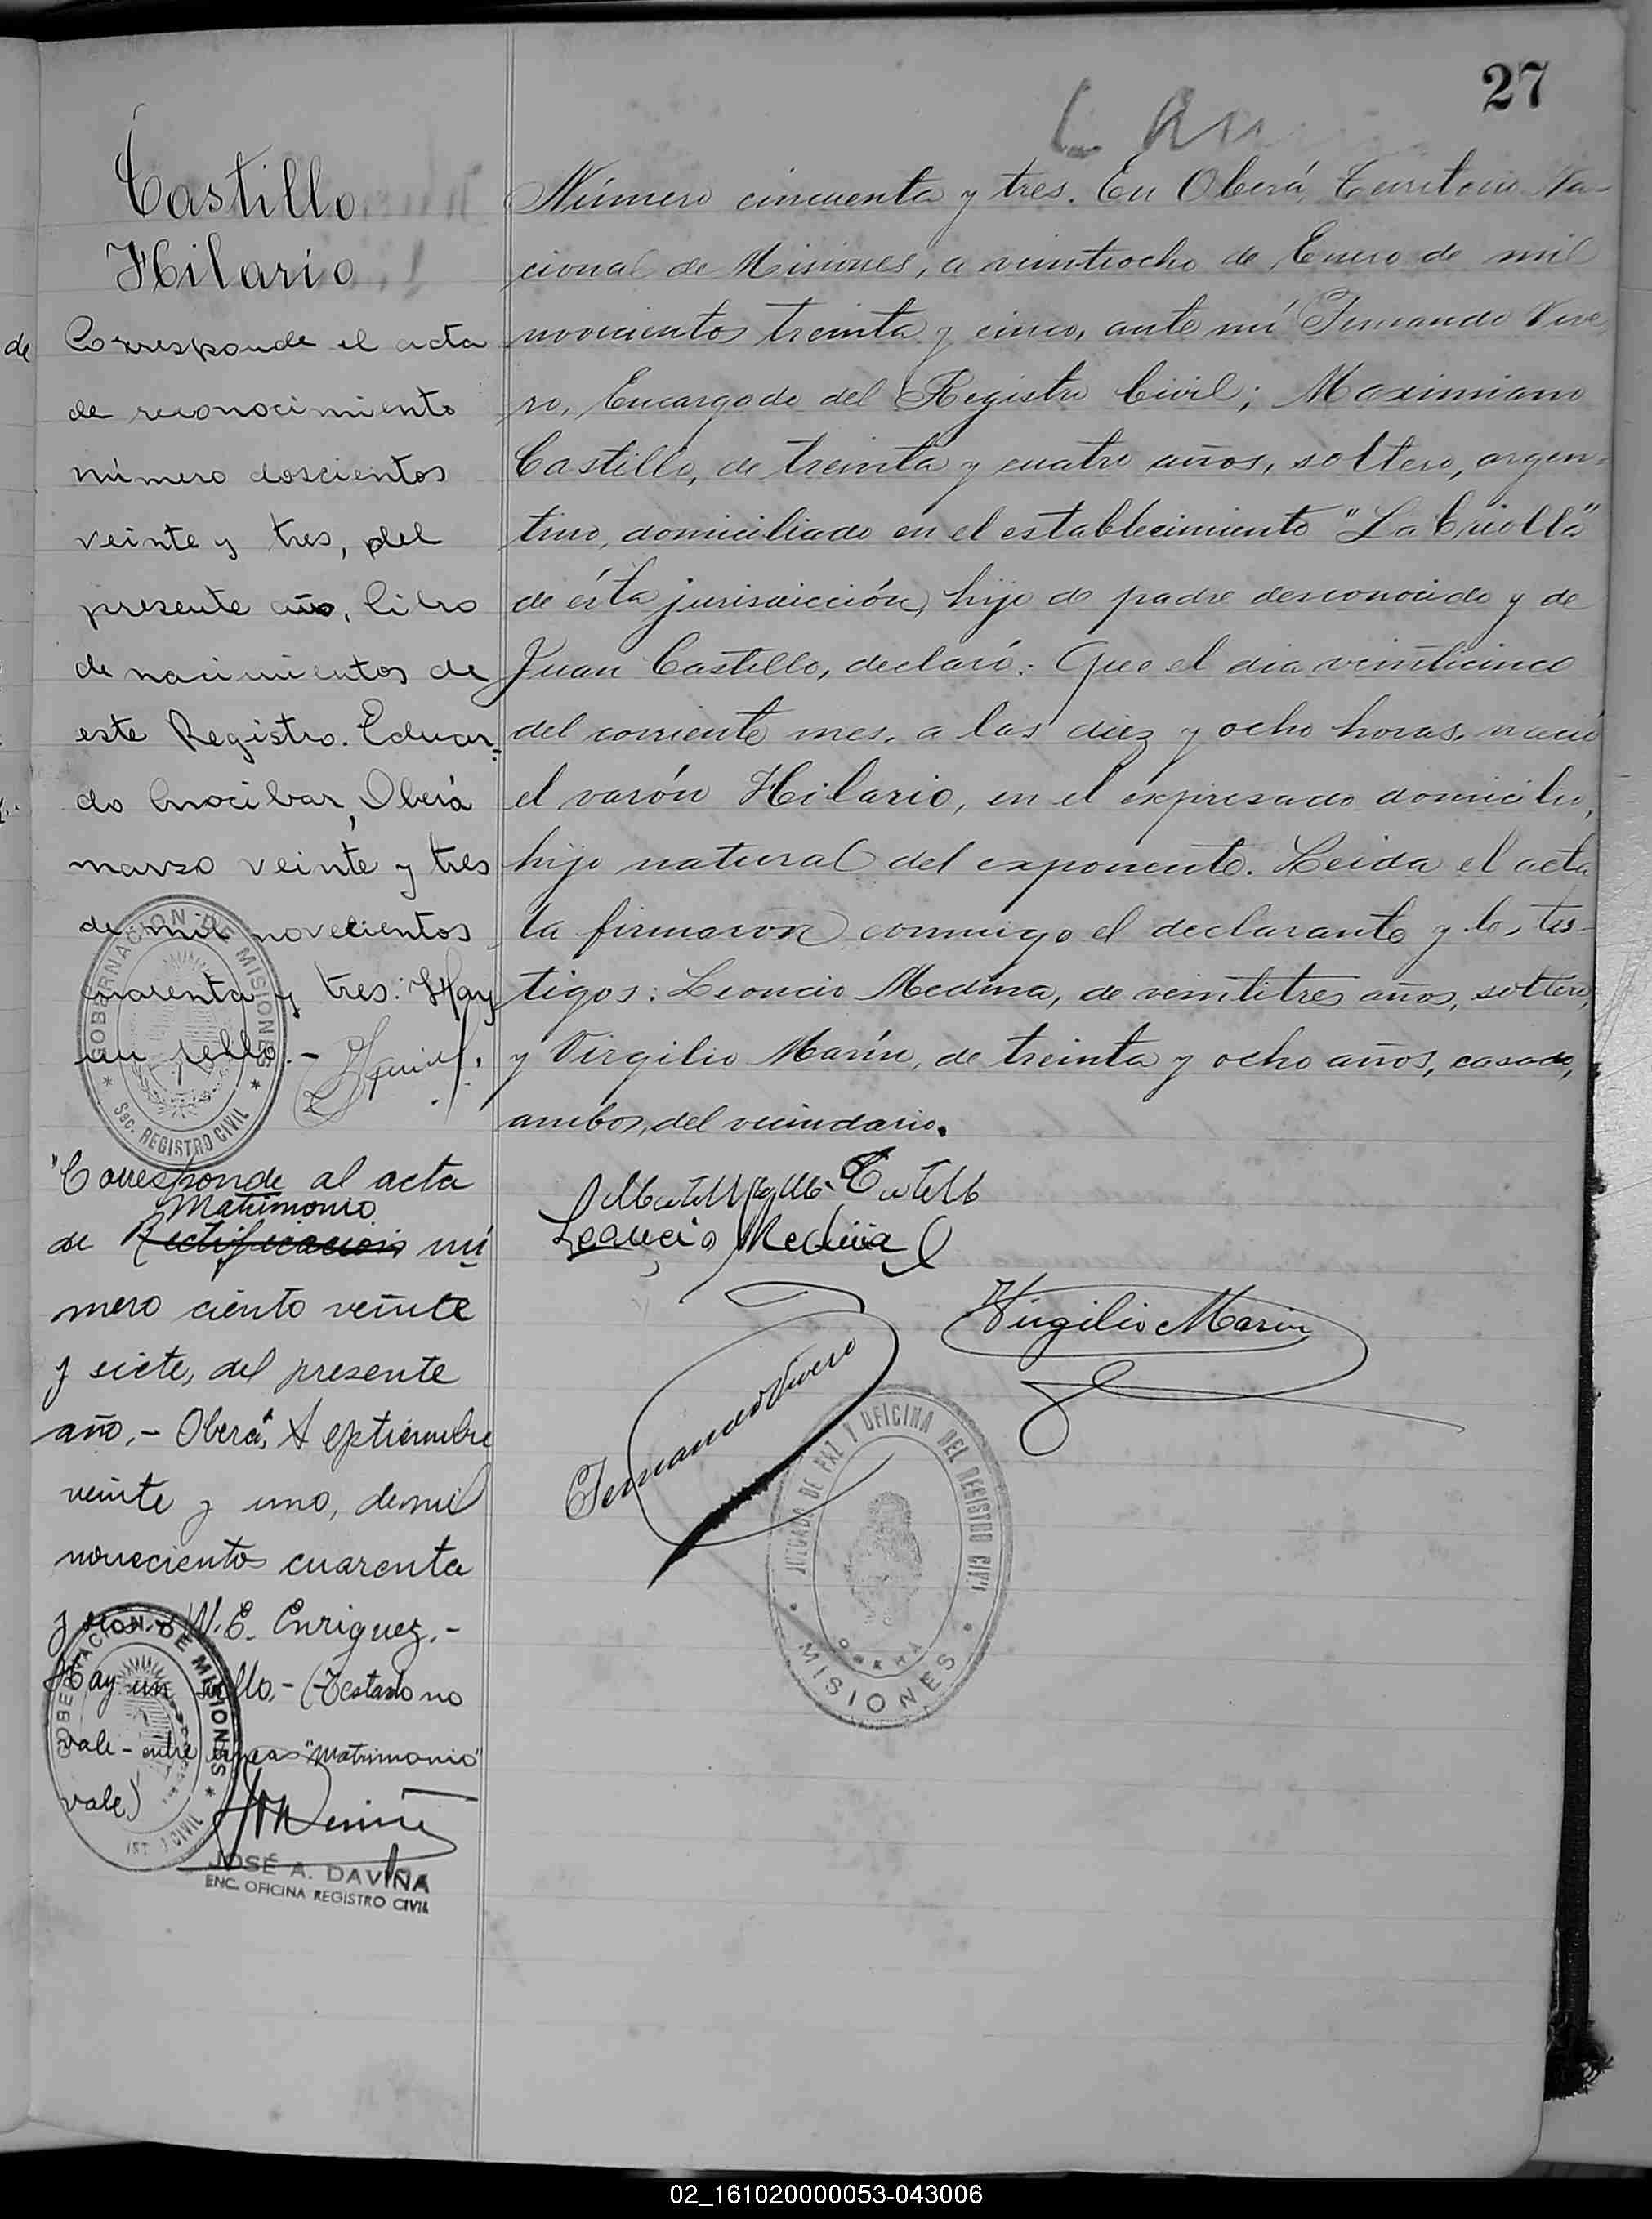 27
Castillo
Hilario
de
Corresponde el acta
de reconocimiento
número doscientos
veinte y tres, del
presente año, libro
de nacimientos de
este Registro. Eduar-
do Anocibar, Oberá
marzo veinte y tres
de mil novecientos
cuarenta y tres: Hay
un sello.-
GOBERNACION DE MISIONES
Sec. REGISTRO CIVIL
"Corresponde al acta
Matrimonio
de Rectificacion nú
mero ciento veinte
y siete, del presente
año.- Oberá, Septiembre
veinte y uno, de mil
novecientos cuarenta
y W. E. Enriquez.-
Hay un sello.- (Testado no
vale - entre lineas "Matrimonio"
vale)
GOBERNACION DE MISIONES
CIVIL
JOSÉ A. DAVIÑA
ENC. OFICINA REGISTRO CIVIL
Número cincuenta y tres. En Oberá, Territorio Na-
cional de Misiones, a veintiocho de Enero de mil
novecientos treinta y cinco, ante mí Fernando Vive
ro, Encargado del Registro Civil; Maximiano
Castillo, de treinta y cuatro años, soltero, argen-
tino, domiciliado en el establecimiento "La Criolla"
de ésta jurisdicción, hijo de padre desconocido y de
Juan Castillo, declaró: Que el dia veinticinco
del corriente mes, a las diez y ocho horas, nació
el varón Hilario, en el expresado domicilio,
hijo natural del exponente. Leida el acta
la firmaron conmigo el declarante y los tes-
tigos: Leoncio Medina, de veintitres años, soltero,
y Virgilio Marín, de treinta y ocho años, casado,
ambos, del vecindario.
Castillo
Leoncio Medina
Virgilio Marin
Fernando Vivero
JUZGADO DE PAZ Y OFICINA DEL REGISTRO CIVIL
OBERA
MISIONES
02_161020000053-043006